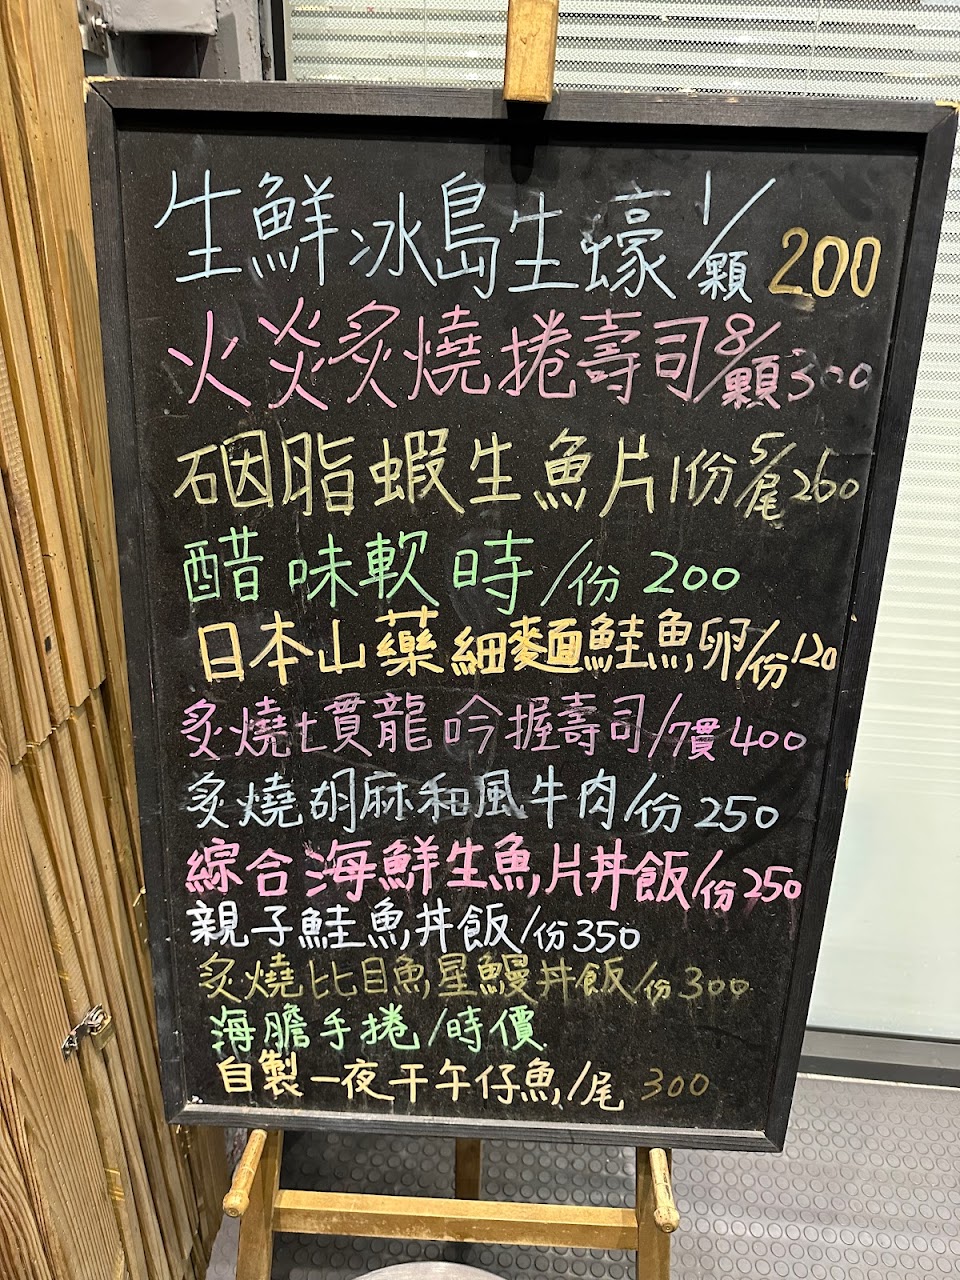 生鮮冰島生蠔1/顆 200
火炎炙燒捲壽司8/顆300
硱脂蝦生魚片1份5/尾260
醋味軟時/份 200
日本山藥細麵鮭魚卵/份120
炙燒七貫龍吟握壽司/7貫400
炙燒胡麻和風牛肉/份250
綜合海鮮生魚片丼飯/份250
親子鮭魚丼飯/份350
炙燒比目魚星鰻丼飯/份300
海膽手捲/時價
自製一夜干午仔魚/尾 300